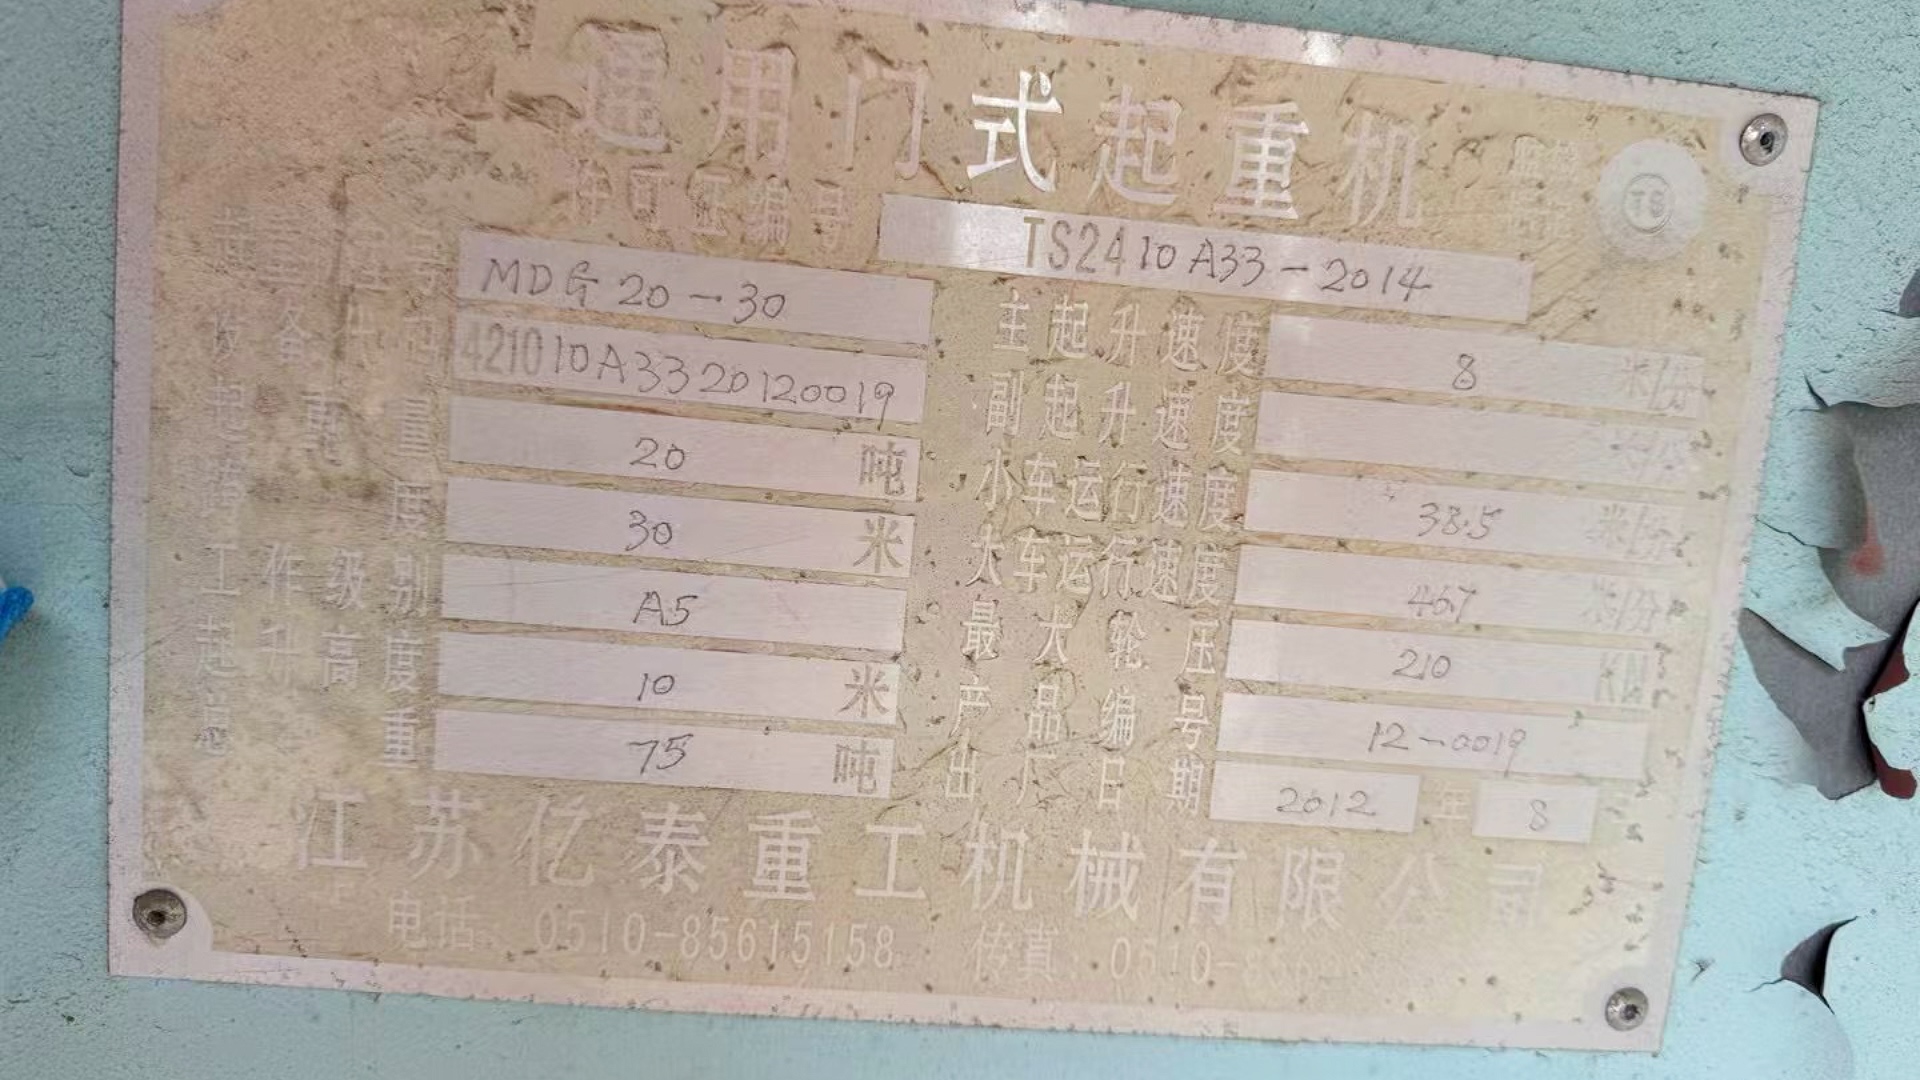 通用门式起重机
许可证编号 TS2410A33-2014
TS
起重机型号 MDG20-30
主起升速度 8 米/分
设备代码 421010A3320120019
副起升速度 米/分
起重量 20 吨
小车运行速度 38.5 米/分
跨度 30 米
大车运行速度 46.7 米/分
工作级别 A5
最大轮压 210 KN
起升高度 10 米
产品编号 12-0019
总重 75 吨
出厂日期 2012 年 8
江苏亿泰重工机械有限公司
电话: 0510-85615158 传真: 0510-856